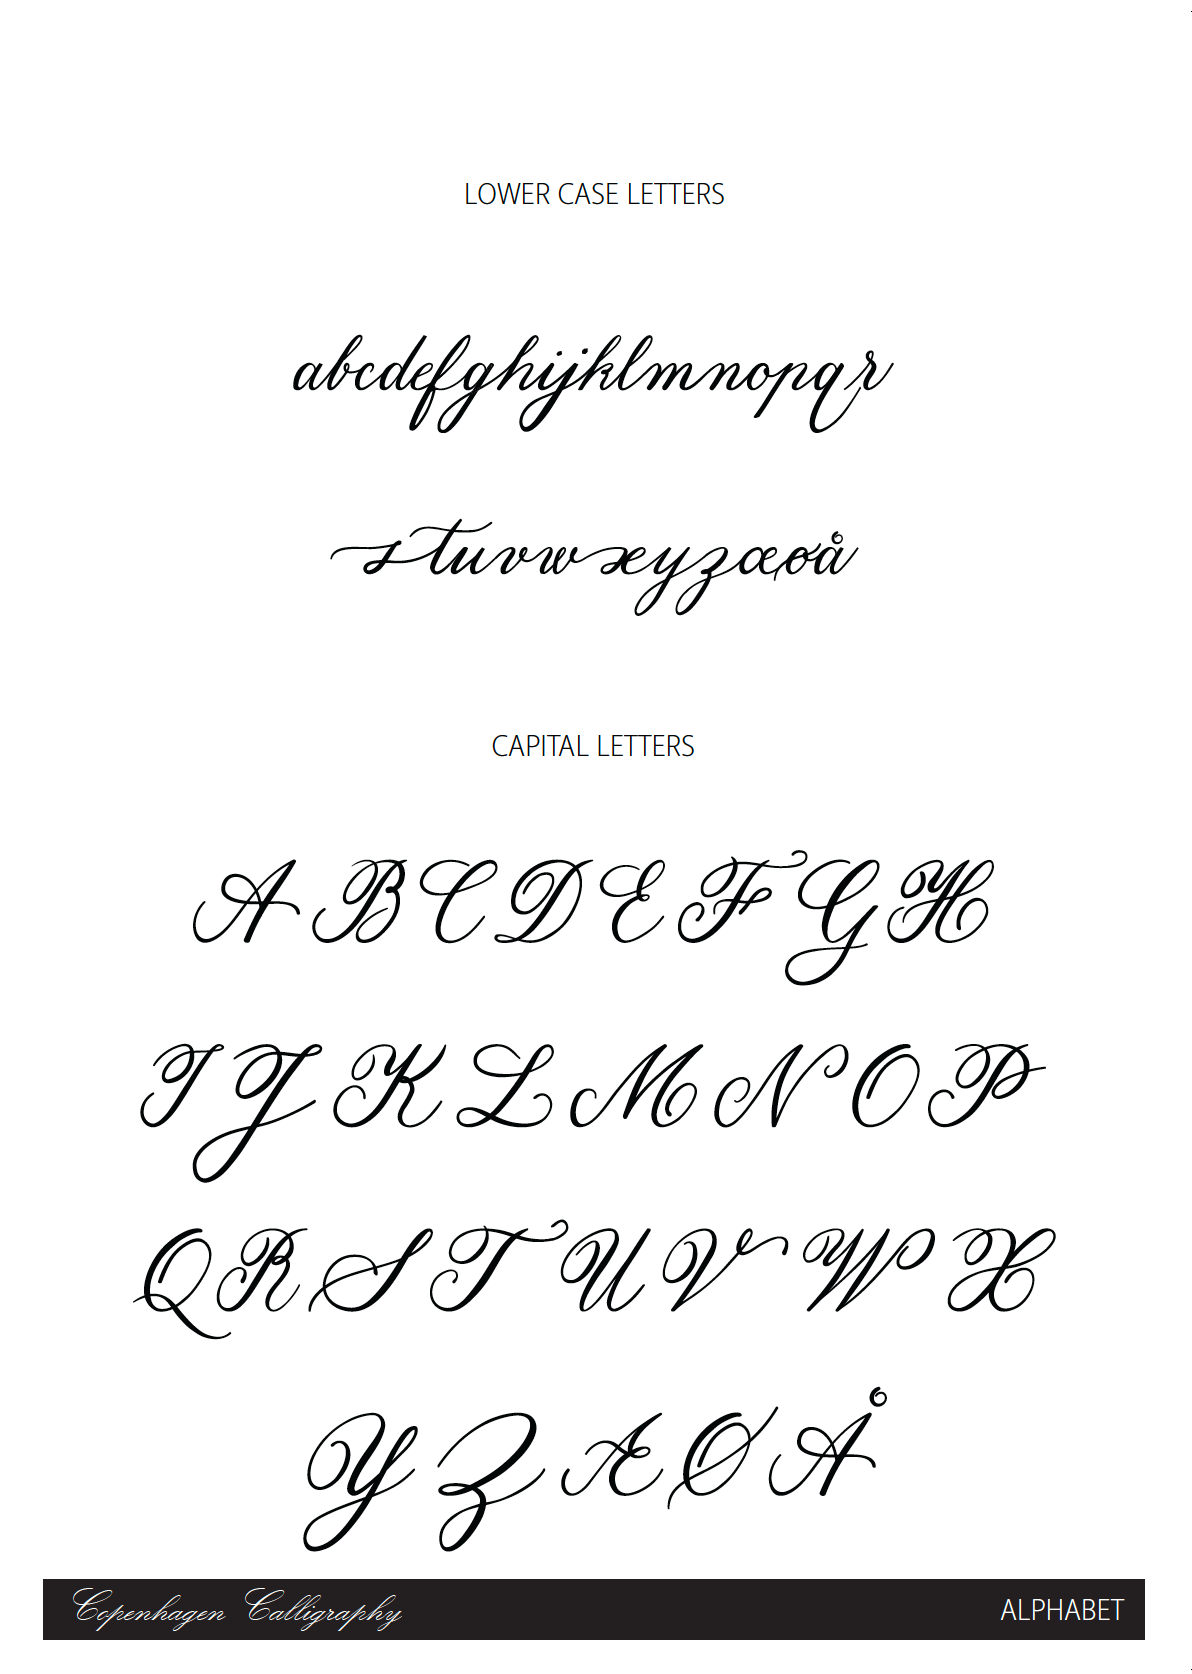 LOWER CASE LETTERS
abcdefghijklmnopqr
stuvwxyzæøå
CAPITAL LETTERS
ABCDEFGH
IJKLMNOP
QRSTUVWX
YZÆØÅ
Copenhagen Calligraphy ALPHABET